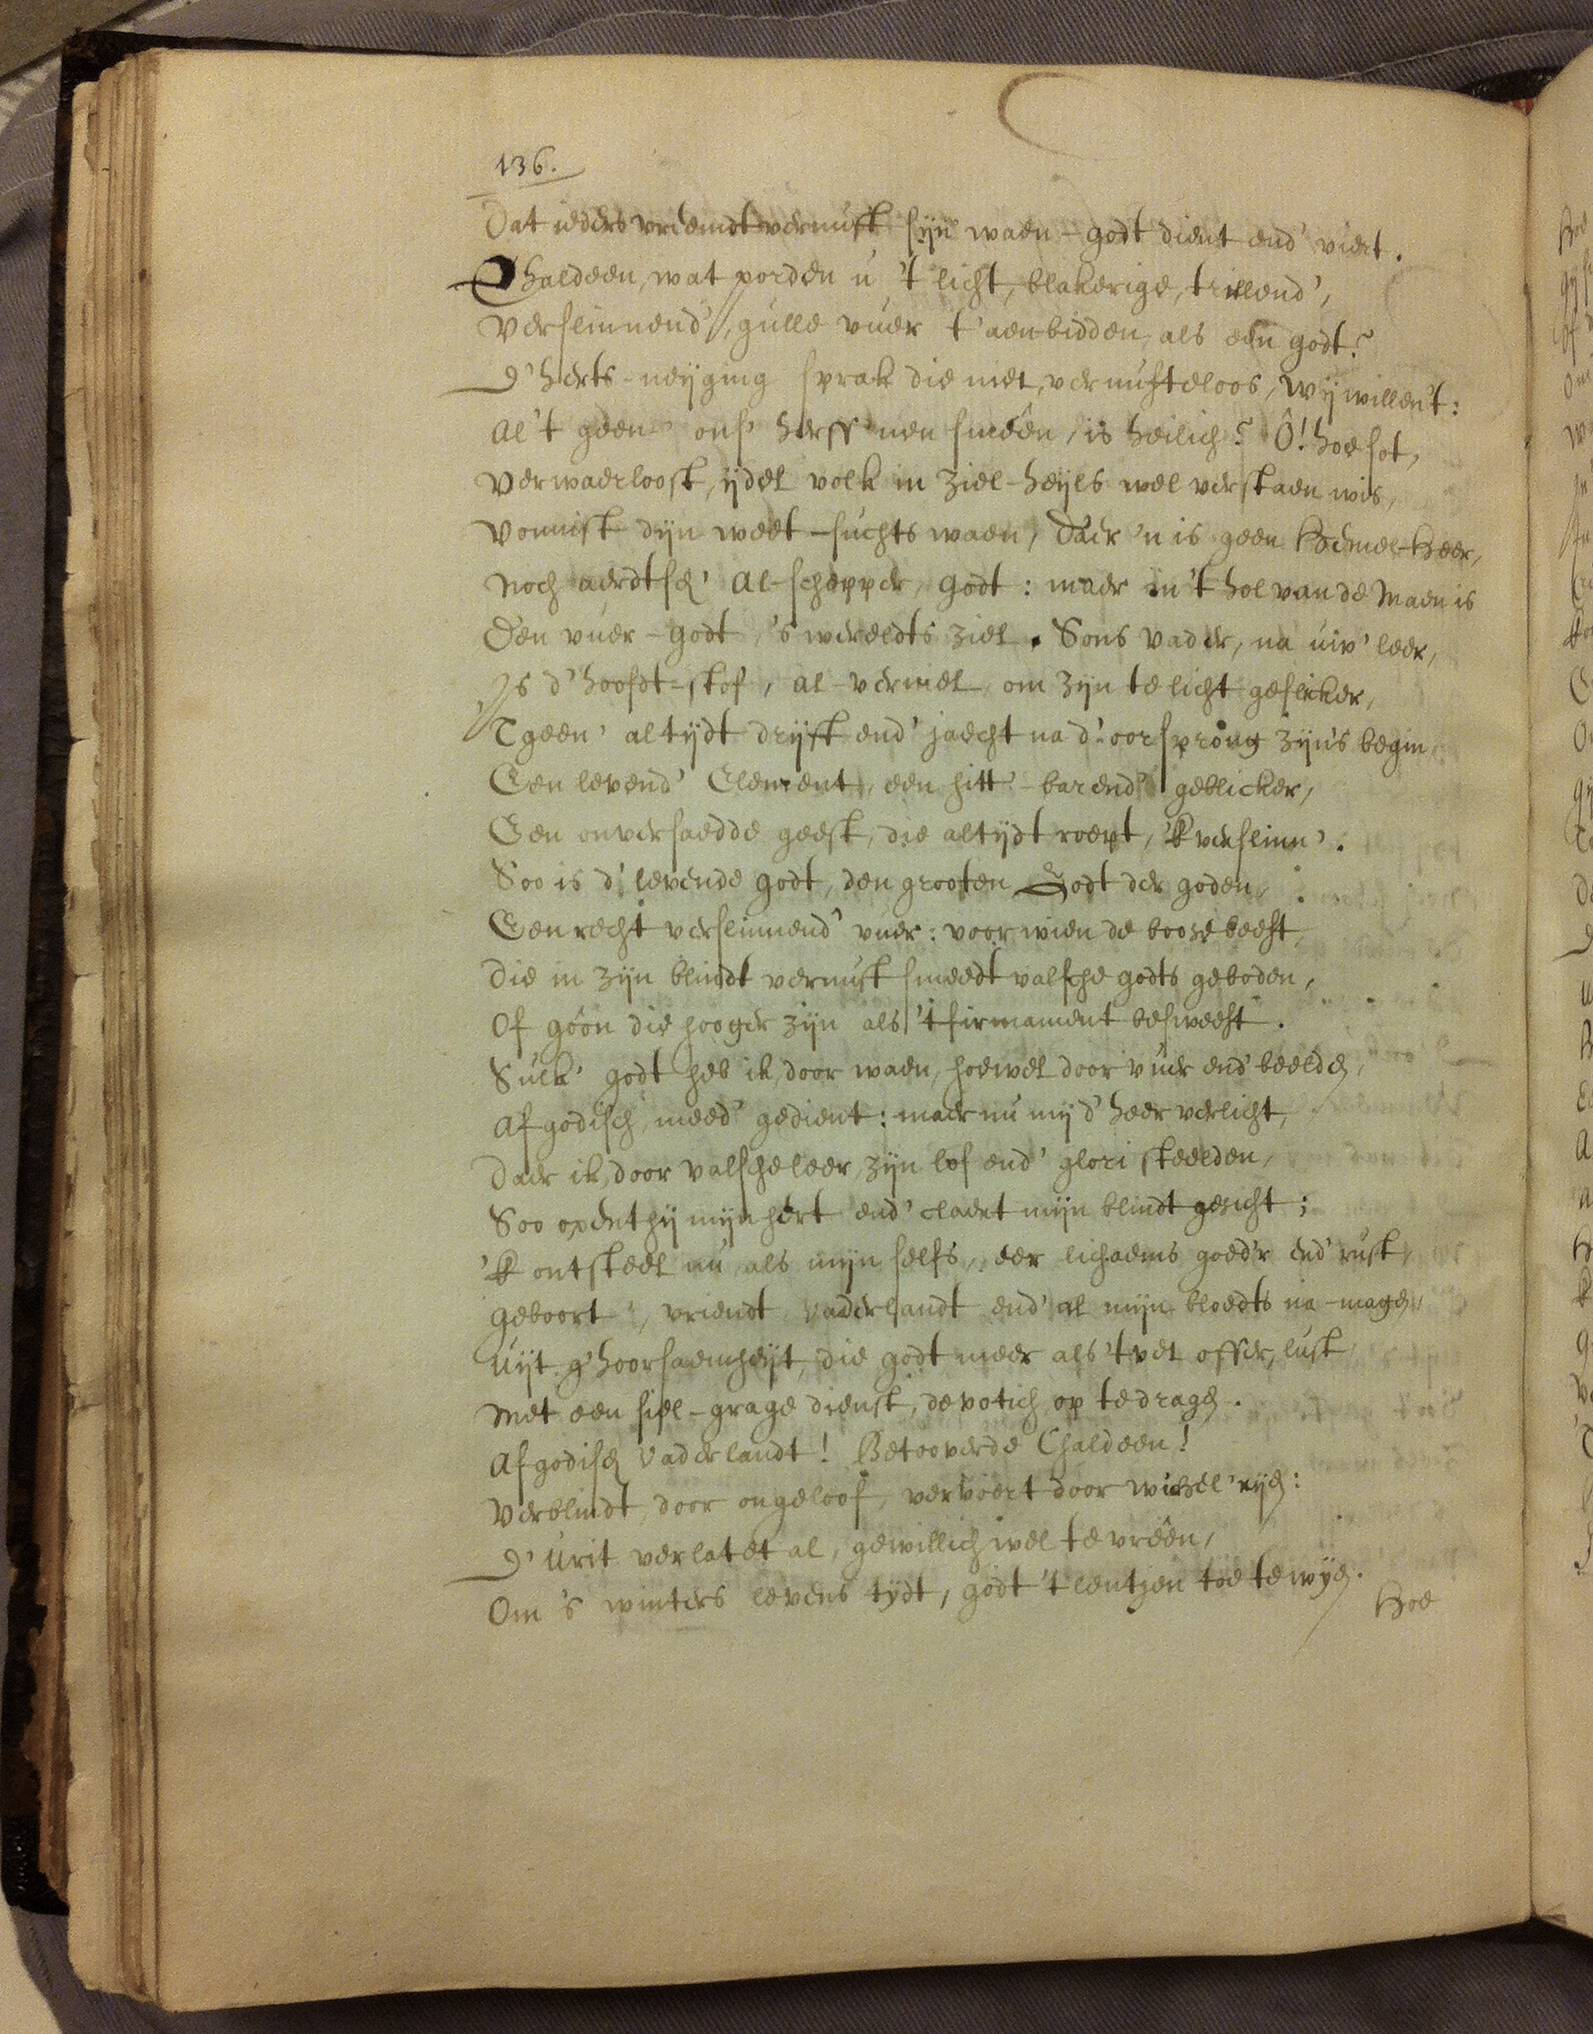 136.
Dat ieders vriemdt vernuft sijn waen-godt dient end' viert.
Chaldeen, wat porden u 't licht, blakerige, trillend',
Verslinnend', gulle vuer t' aenbidden, als een godt?
D' herts-neijging sprak die niet, vernufteloos, wij willen't:
Al 't geen' ons' herss'nen smeên, is heilich? Ô! hoe sot,
Verwaerloost, ijdel volk in ziel-heijls wel verstaen wis,
Vonnist dijn weet-suchts waen, Daer 'n is geen Hemel-heer,
Noch aerdtsch' Al-schepper, godt: maer in 't hol van de Maen is
Een vuer-godt, 's werelts ziel. Sons vader, na uw' leer,
Is d' hooft-stof, al-verniel, om zijn te licht geflicker,
'T geen' altijdt drijft end' jaecht na d' oorsprong zijns begin
Een levend' Element, een hitt'-barend' geblicker,
Een onversaedde geest, die altijdt roept, 'k verslinn'.
Soo is d' levende godt, den grooten Godt der goden,
Een recht verslinnend' vuer: voor wien de booze beeft,
Die in zijn blindt vernuft smeedt valsche godts geboden,
Of góôn die hooger zijn als 't firmament besweeft.
Sulk' godt heb ik, door waen, hoewel door vuer end' beelden,
Afgodisch, meed' gedient: maer nu mij d' heer verlicht,
Daer ik, door valsche leer, zijn lof end' glori steelden,
Soo opent hij mijn hert end' claert mijn blindt gesicht;
'K ontsteel nu, als mijn selfs, eer lichaems goed'r end' rust,
Geboort', vriendt, vaderlandt end' al mijn bloedts na-magen,
Uijt g'hoorsaemheijt, die godt meer als 't vet offer, lust,
Met een siel-grage dienst, devotich op te dragen.
Afgodisch Vaderlandt! Betooverde Chaldeen!
Verblindt, door ongeloof, vervoert door wichel'rijen:
D' Urit verlatet al, gewillich wel te vreên,
Om 's winters levens tijdt, godt 't lentjen toe te wijen.
Hoe